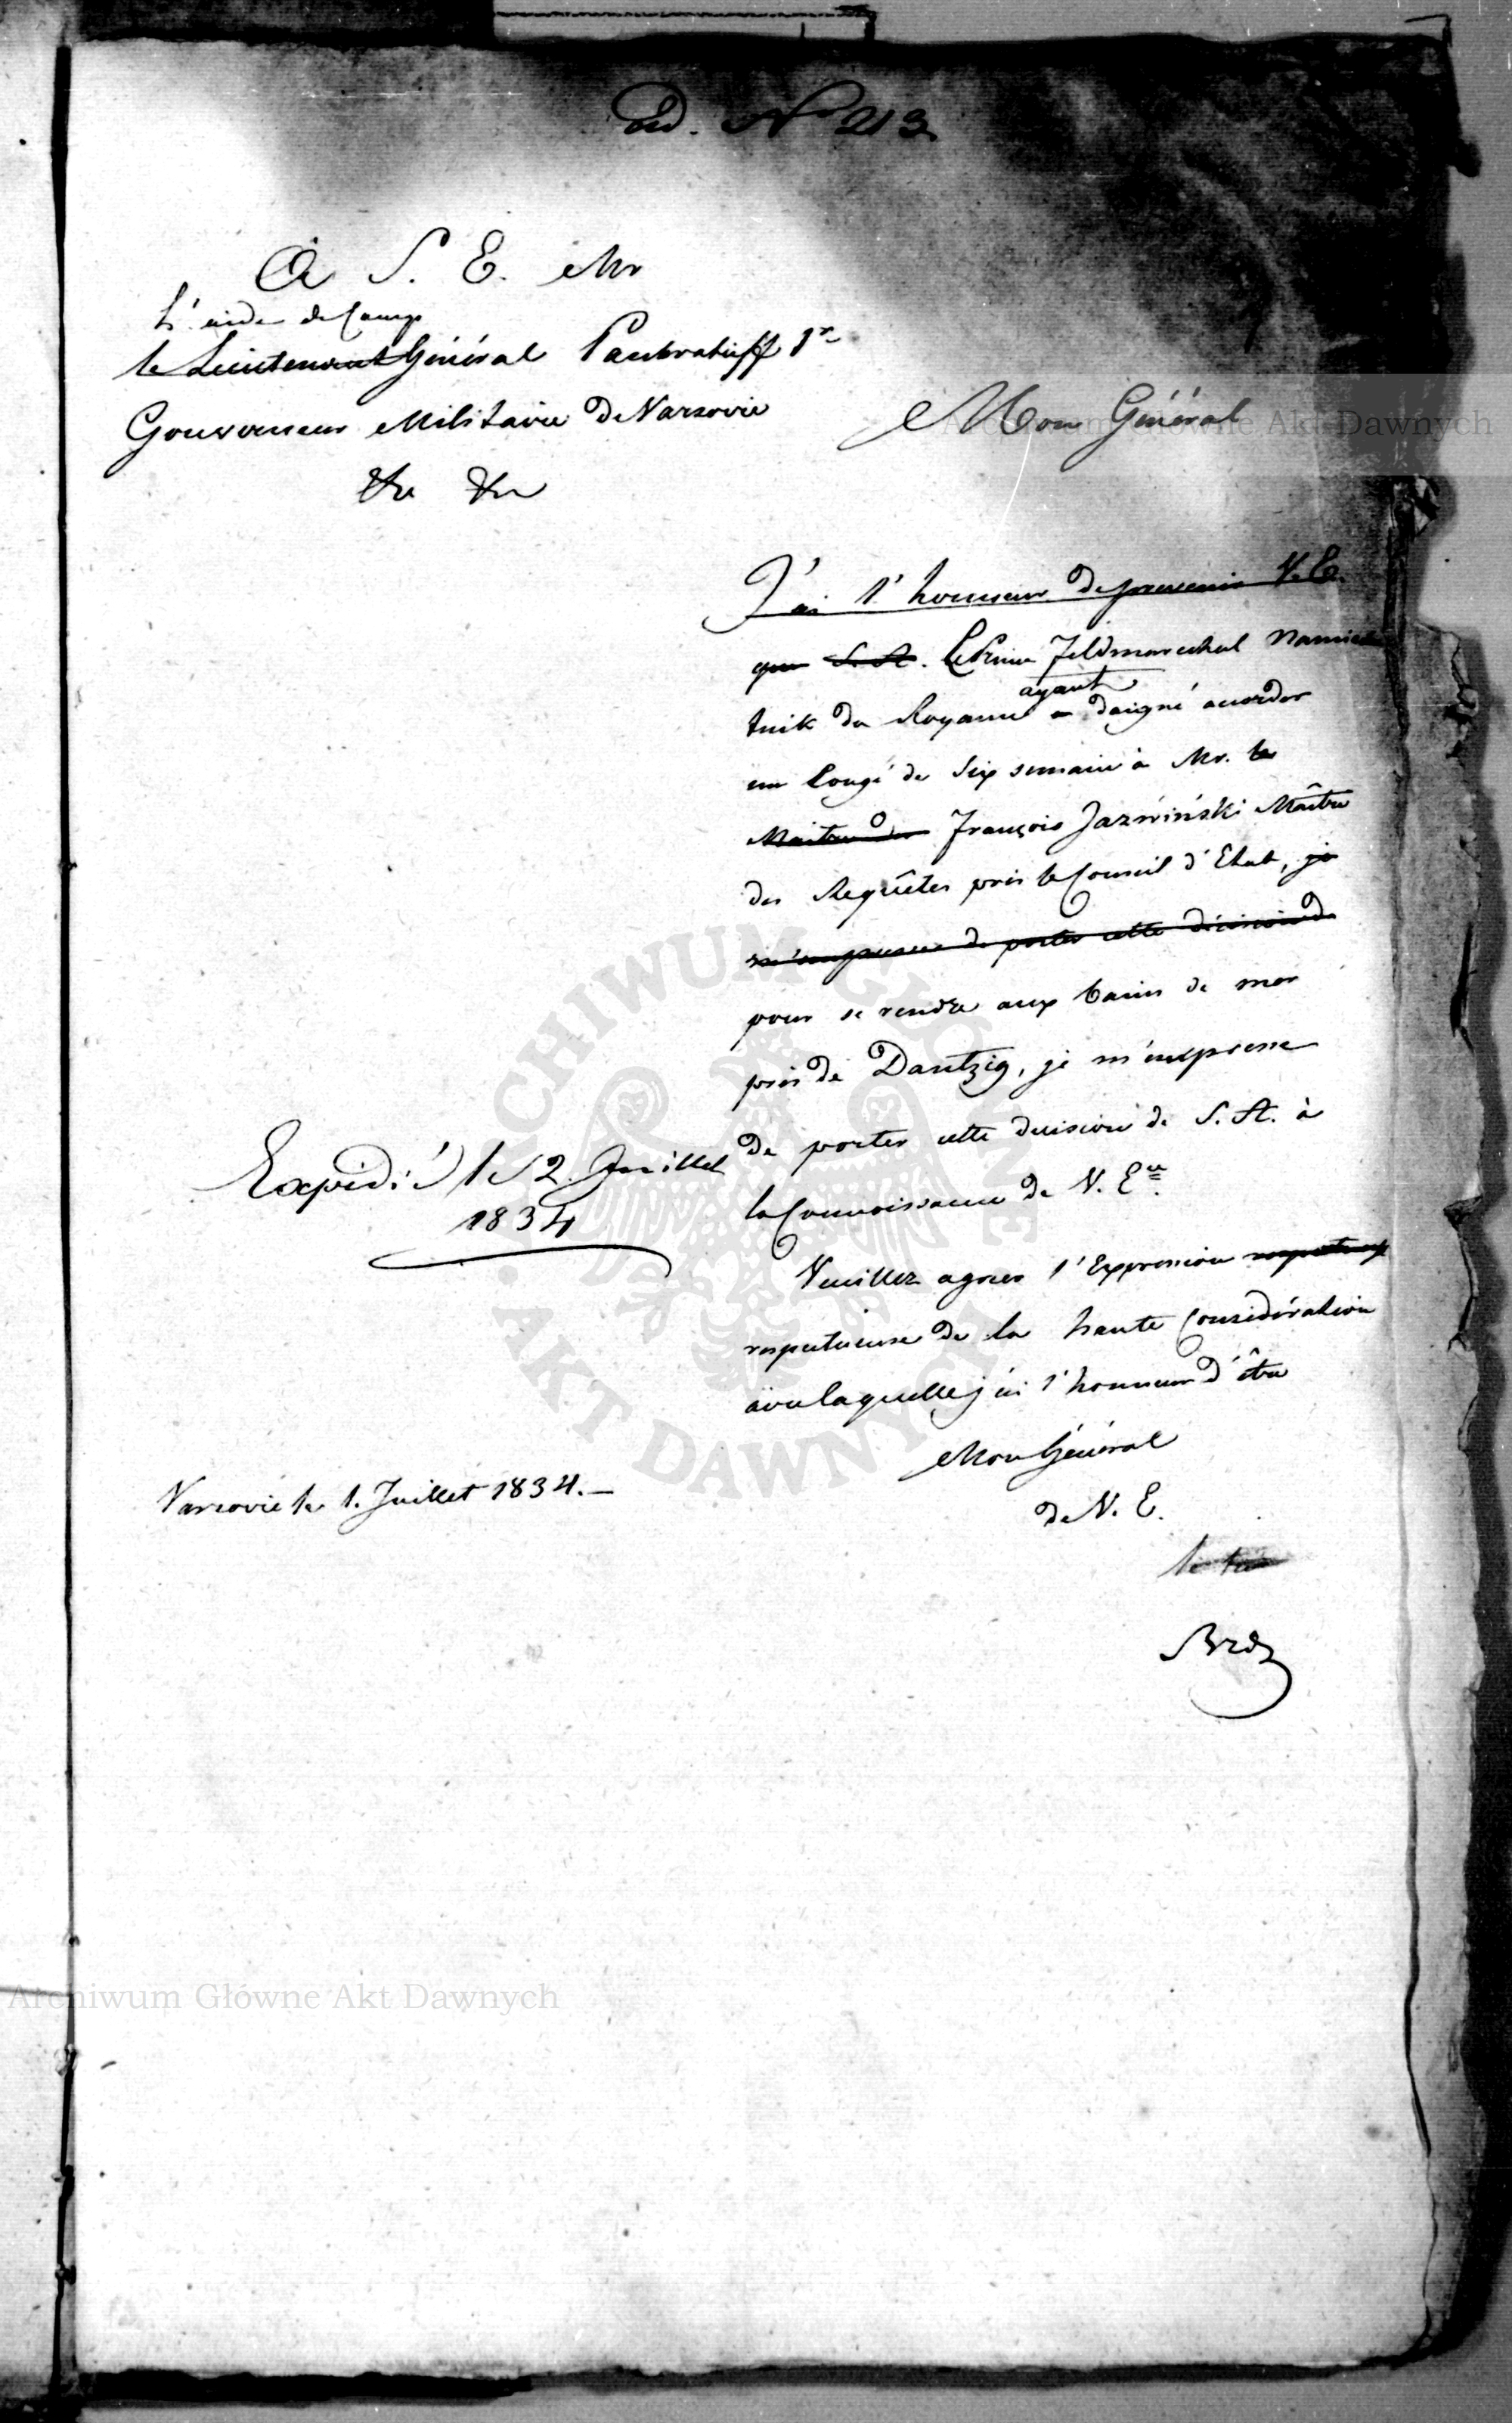 ad. N 213
A S. E. Mr
L'aide de Camp
le Lieutenant Général Pankratieff 1r
Gouverneur Militaire de Varsovie
&a &a
Mon Général
J'ai l'honneur de prevenir V. E.
que S. A. le Prince Feldmarechal Namies
tnik du Royaume ayant a daigné accorder
un Congé de Six semaine à Mr. le
Maitre des François Jazwiński Maître
des Requêtes près le Conseil d'Etat, je
m'empresse de porter cette décision de
pour se rendre aux bains de mer
près de Dantzig, je m'empresse
de porter cette decision de S. A. à
la Connoissance de V. Ece.
Veuillez agreer l'Expression respectueuse
respectueuse de la haute Considération
avec laquelle j'ai l'honneur d'être
Mon Général
de V. E.
le
Expedié le 2 Juillet
1834
Varsovie le 1. Juillet 1834.—
Archiwum Główne Akt Dawnych
ARCHIWUM GŁÓWNE AKT DAWNYCH
Archiwum Główne Akt Dawnych